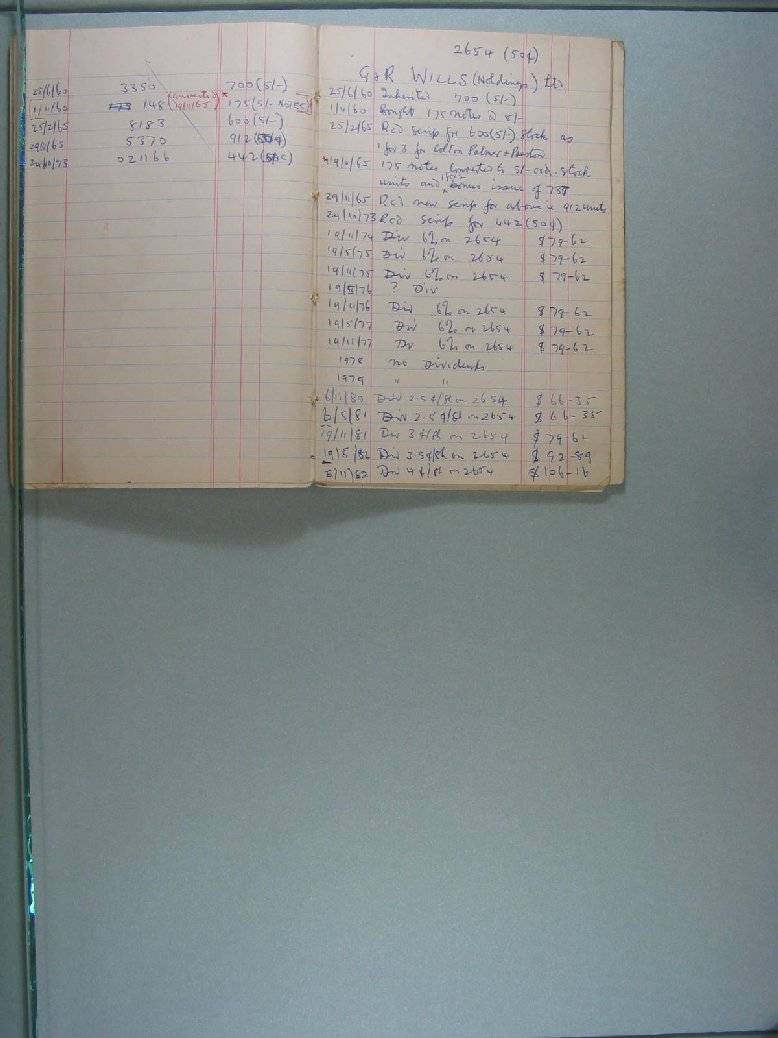 25/6/60 3350 700 (5/-)
1/11/60 148 (converted 19/11/65) * 175 (5/- NOTES)
25/2/65 8183 600 (5/-)
29/11/65 5370 912
24/10/73 021166 442 (50c)
2654 (50¢)
G & R WILLS (Holdings) Ltd
25/6/60 Inherited 700 (5/-)
1/11/60 Bought 175 notes @ 5/-
25/2/65 Rcd scrip for 600 (5/-) Stock as
1 for 3 for Colton Palmer & Preston
* 19/11/65 175 notes converted to 5/- ord. stock
units and bonus issue of 737
29/11/65 Rcd new scrip for above ie 912 units
24/10/73 Rcd scrip for 442 (50¢)
19/11/74 Div 6% on 2654 $79-62
19/5/75 Div 6% on 2654 $79-62
19/11/75 Div 6% on 2654 $79-62
19/5/76 ? Div
19/11/76 Div 6% on 2654 $79-62
19/5/77 Div 6% on 2654 $79-62
19/11/77 Div 6% on 2654 $79-62
1978 no Dividends
1979 " "
6/11/80 Div 2.5¢/sh on 2654 $66-35
6/5/81 Div 2.5¢/sh on 2654 $66-35
19/11/81 Div 3¢/sh on 2654 $79-62
19/5/82 Div 3.5¢/sh on 2654 $92-89
5/11/82 Div 4¢/sh on 2654 $106-16